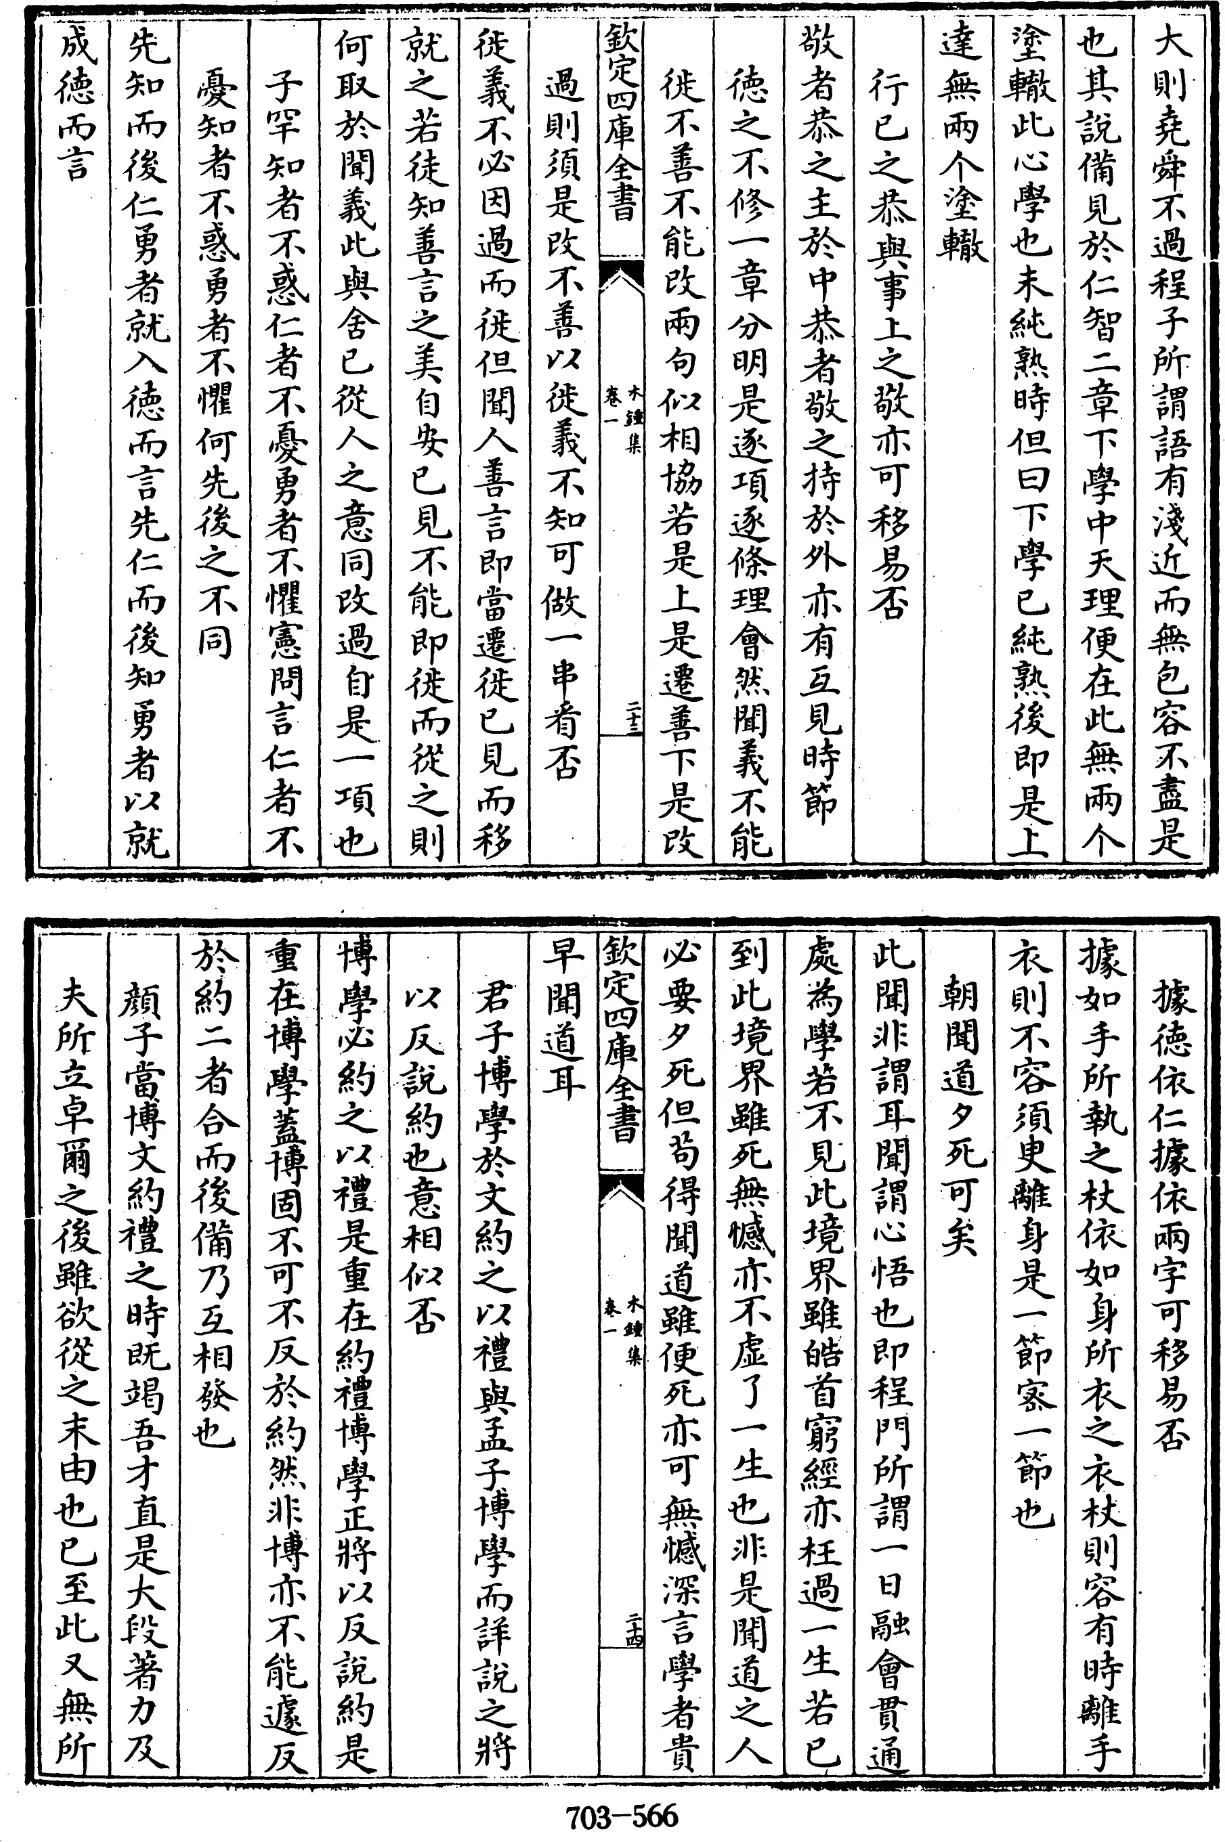 大則堯舜不過程子所謂語有淺近而無包容不盡是
也其說備見於仁智二章下學中天理便在此無兩个
塗轍此心學也未純熟時但曰下學已純熟後即是上
達無兩个塗轍
行已之恭與事上之敬亦可移易否
敬者恭之主於中恭者敬之持於外亦有互見時節
德之不修一章分明是逐項逐條理會然聞義不能
徙不善不能改兩句似相協若是上是遷善下是改
欽定四庫全書
木鍾集
卷一
二十三
過則須是改不善以徙義不知可做一串看否
徙義不必因過而徙但聞人善言即當遷徙已見而移
就之若徒知善言之美自安已見不能即徙而從之則
何取於聞義此與舍已從人之意同改過自是一項也
子罕知者不惑仁者不憂勇者不懼憲問言仁者不
憂知者不惑勇者不懼何先後之不同
先知而後仁勇者就入德而言先仁而後知勇者以就
成德而言
據德依仁據依兩字可移易否
據如手所執之杖依如身所衣之衣杖則容有時離手
衣則不容須臾離身是一節宻一節也
朝聞道夕死可矣
此聞非謂耳聞謂心悟也即程門所謂一日融會貫通
處為學若不見此境界雖皓首窮經亦枉過一生若已
到此境界雖死無憾亦不虛了一生也非是聞道之人
必要夕死但苟得聞道雖便死亦可無憾深言學者貴
欽定四庫全書
木鍾集
卷一
二十四
早聞道耳
君子博學於文約之以禮與孟子博學而詳說之將
以反說約也意相似否
博學必約之以禮是重在約禮博學正將以反說約是
重在博學蓋博固不可不反於約然非博亦不能遽反
於約二者合而後備乃互相發也
顏子當博文約禮之時既竭吾才直是大段著力及
夫所立卓爾之後雖欲從之末由也已至此又無所
703-566